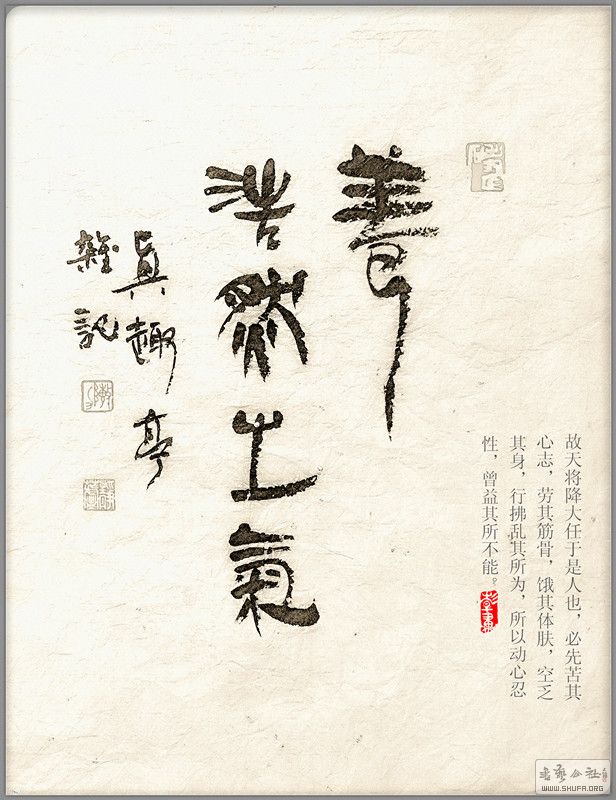 養
浩然之氣
真趣亭
雜記
故天将降大任于是人也，必先苦其
心志，劳其筋骨，饿其体肤，空乏
其身，行拂乱其所为，所以动心忍
性，曾益其所不能。
書藝公社
WWW.SHUFA.ORG